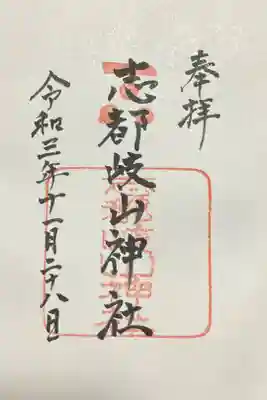 奉拝
志都岐山神社
令和三年十一月二十八日